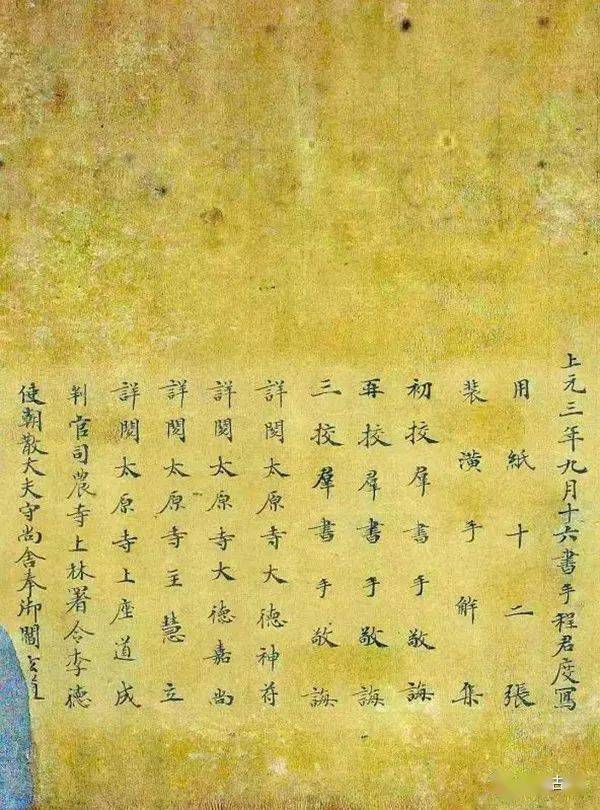 上元三年九月十六書手程君度寫
用紙十二張
裝潢手解集
初挍羣書手敬誨
再挍羣書手敬誨
三挍羣書手敬誨
詳閱太原寺大德神苻
詳閱太原寺大德嘉尚
詳閱太原寺主慧立
詳閱太原寺上座道成
判官司農寺上林署令李德
使朝散大夫守尚舍奉御閻玄道